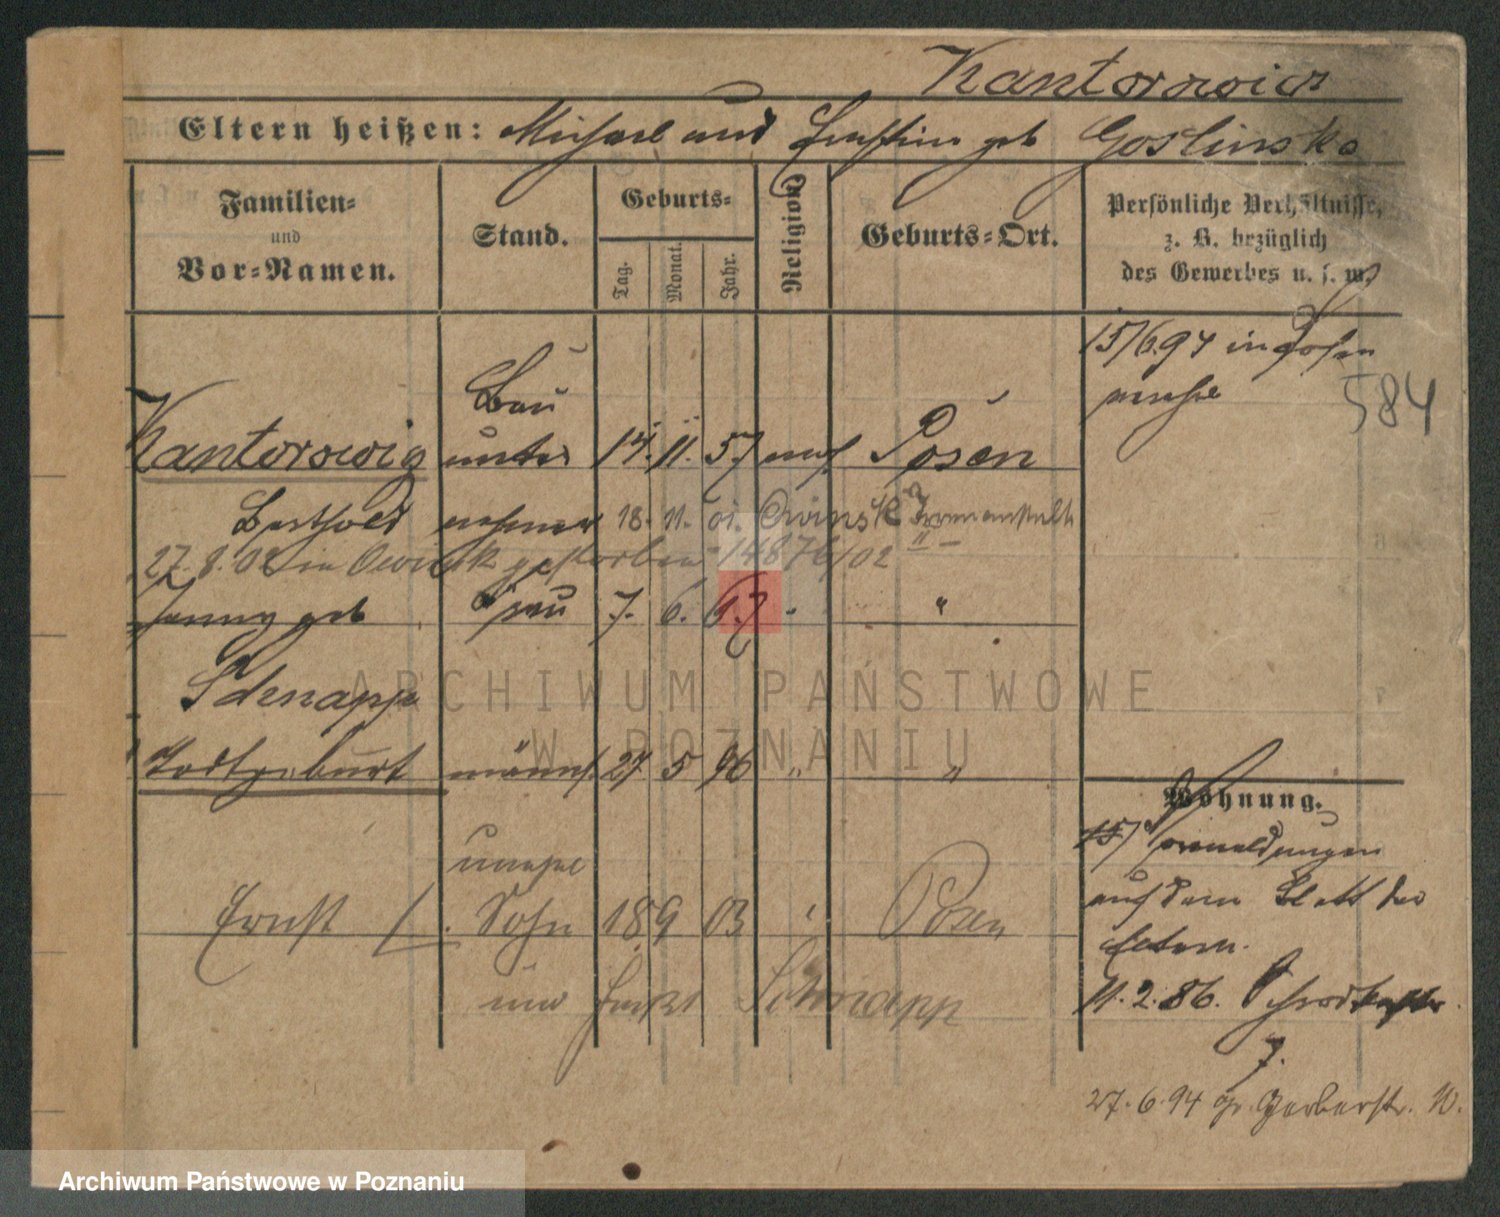 Kantorowicz
Eltern heißen: Michael und Ernstine geb Goslinska
Familien=
und
Vor=Namen.
Stand.
Geburts=
Tag.
Monat.
Jahr.
Religion.
Geburts=Ort.
Persönliche Verhältnisse,
z. B. bezüglich
des Gewerbes u. s. w.
15/6.94 in Posen
584
Bau
Kantorowicz unter 14. 11. 57 mos Posen
Berthold nehmer 18. 11. 01. Owinsk Irrenanstalt
27. 8. 02 in Owinsk gestorben 14876/02
Jenny geb Frau 7. 6. 67 " "
Schnapp
Todtgeburt männl. 27 5 96 " "
Wohnung.
15/ Vormeldungen
auf dem Blatt der
Eltern.
unehel
Ernst Sohn 18 9 03 " Posen
Schnapp
11. 2. 86.
7.
27. 6. 94 Gr. Gerberstr.
ARCHIWUM PAŃSTWOWE
W POZNANIU
Archiwum Państwowe w Poznaniu